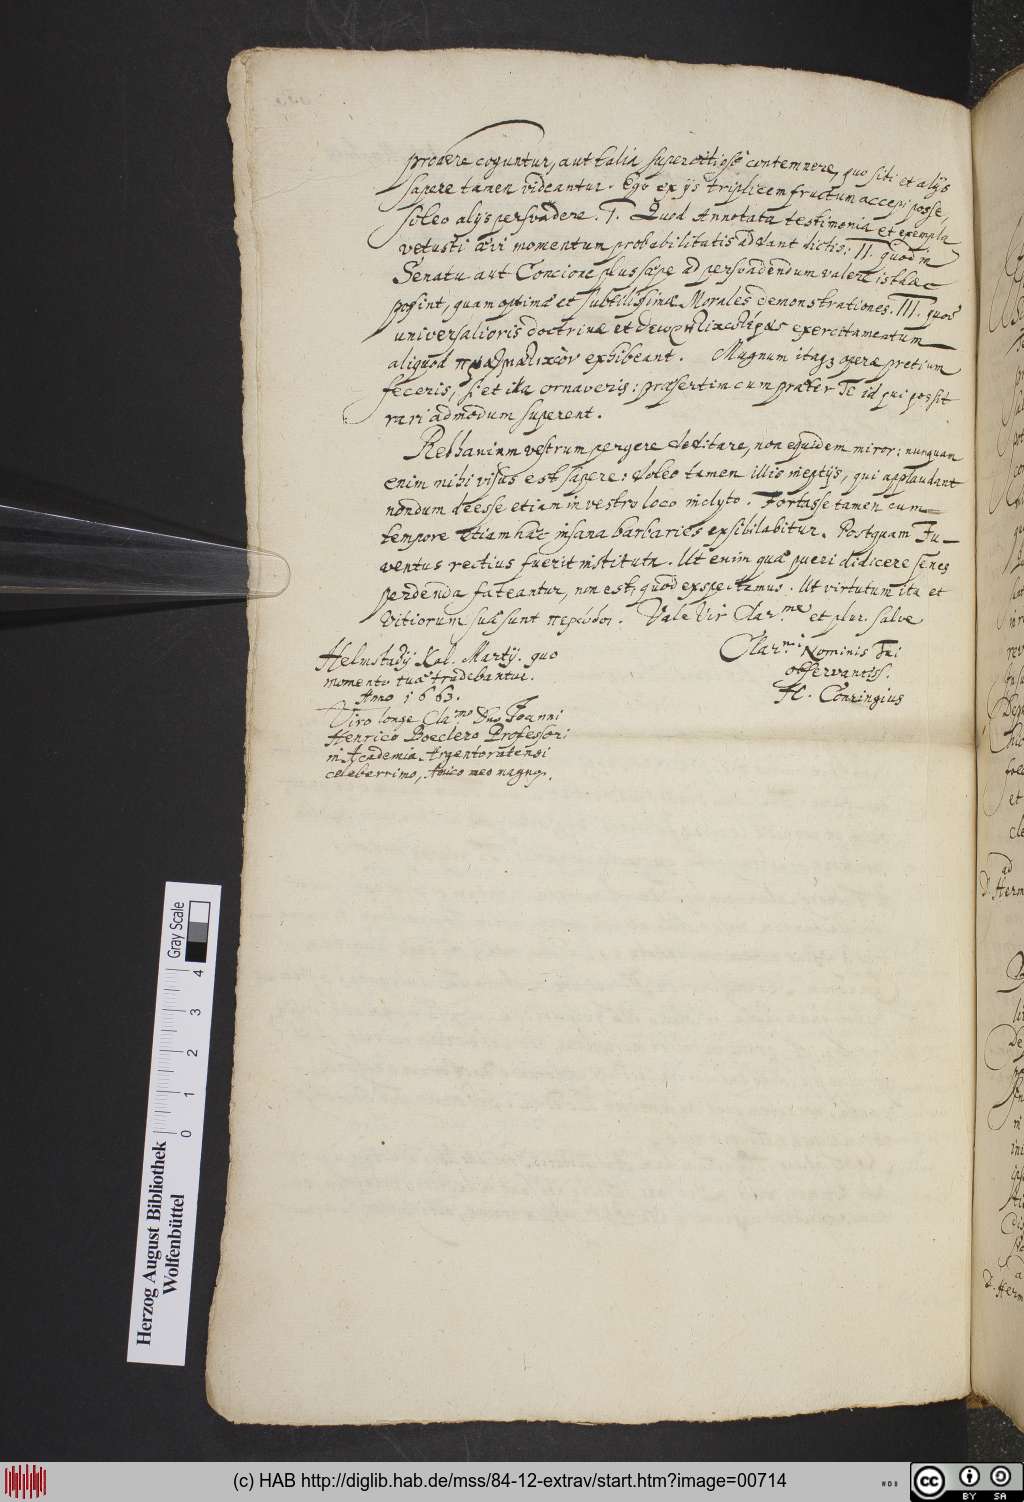 prodere coguntur, aut talia supercitiosè contemnere, quo sibi et alijs
sapere tamen videantur. Ego ex ijs triplicem fructum accepi posse,
soleo alijs persvadere. I. Quod Annotata testimonia et exempla
vetusti ævi momentum probabilitatis addant dictis: II. quod in
Senatu aut Concione plus sæpe ad persvadendum valere isthæc
possint, quam optimæ et subtilissimæ Morales demonstrationes. III. quod
universalioris doctrinæ et exercitamentum
aliquod exhibeant. Magnum itaq3 operæ pretium
feceris, si et ita ornaveris: præsertim cum præter Te id qui possit
rari admodum superent.
Rebhanium vestrum pergere delitare, non equidem miror: nunquam
enim mihi visus est sapere: doleo tamen illis ineptijs, qui applaudant
nondum deesse etiam in vestro loco inclyto. Fortasse tamen cum
tempore etiam hæc insana barbaries exsibilabitur. Postquam Iu-
ventus rectius fuerit instituta. Ut enim quæ pueri didicere senes
perdenda fateantur, non est, quod exspectamus. Ut virtutum ita et
Vitiorum suæ sunt περίοδοι. Vale Vir Clar.me et plur. salve
Clar.mi Nominis Tui
observantiss.
H. Conringius
Helmstadij Kal. Martij. quo
momento tuæ tradebantur.
Anno 1663.
Viro longe Cla.mo Dno Joanni
Henrico Boeclero Professori
in Academia Argentoratensi
celeberrimo, Amico meo magno.
ad
D. Herm
Herzog August Bibliothek
Wolfenbüttel
0 1 2 3 4
Gray Scale
(c) HAB http://diglib.hab.de/mss/84-12-extrav/start.htm?image=00714
WDB
cc
BY SA